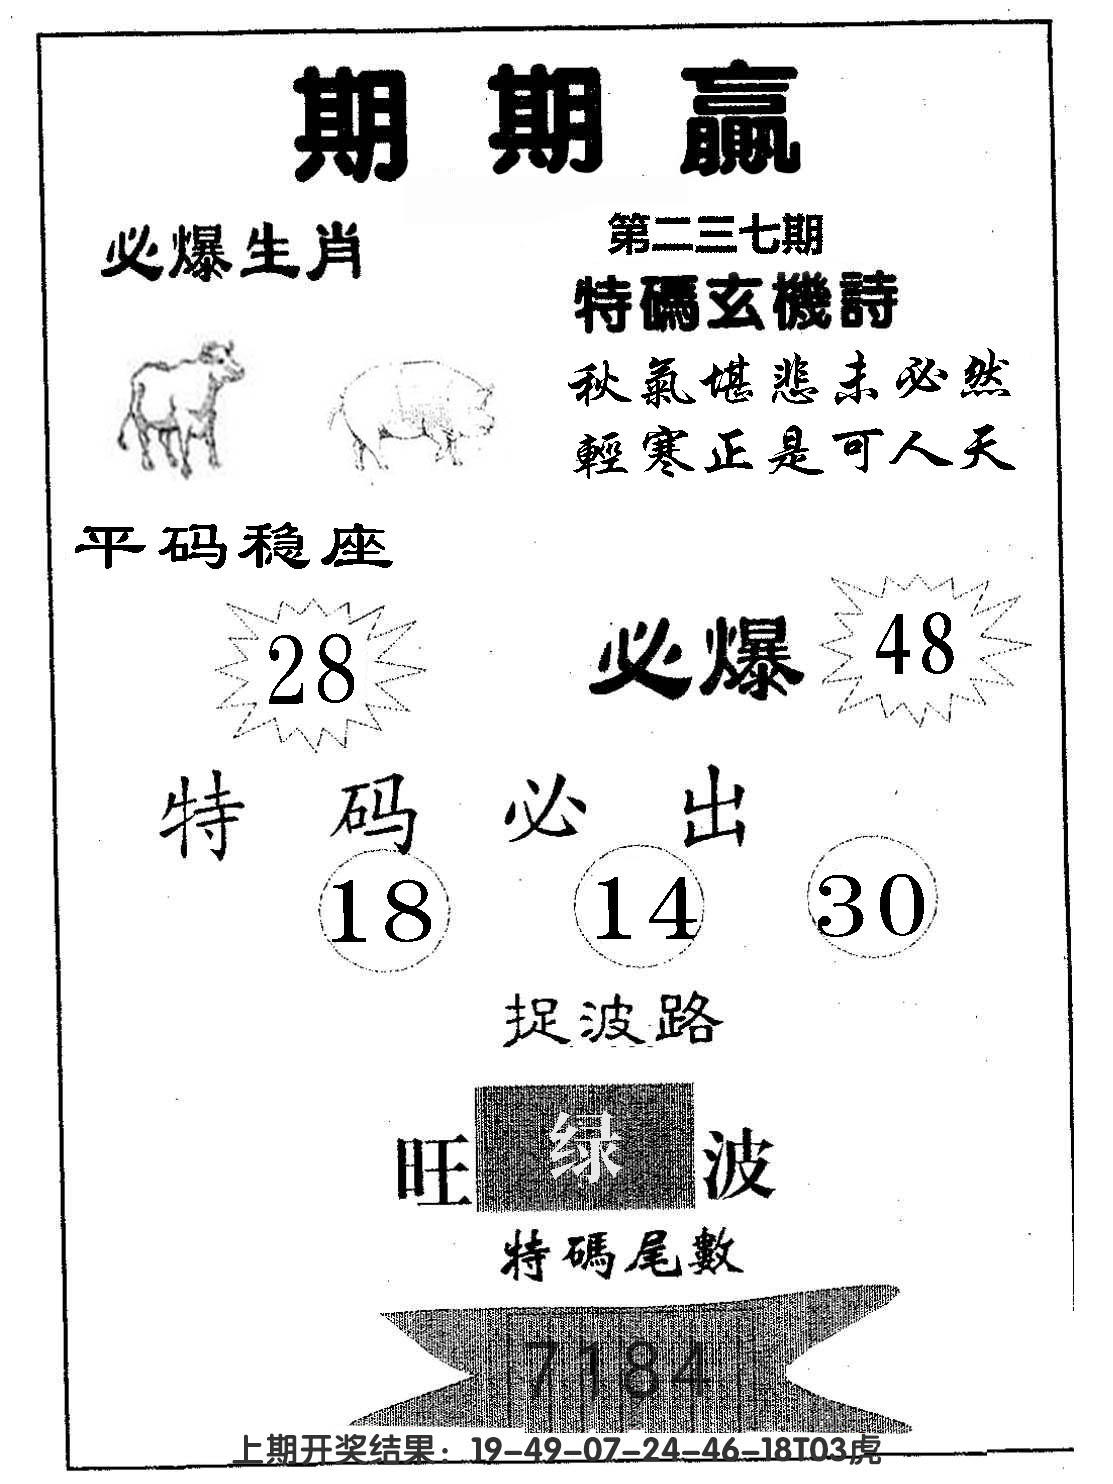 期期贏
必爆生肖
第二三七期
特碼玄機詩
秋氣堪悲未必然
輕寒正是可人天
平码稳座
28
必爆
48
特码必出
18 14 30
捉波路
旺绿波
特碼尾數
7184
上期开奖结果：19-49-07-24-46-18T03虎